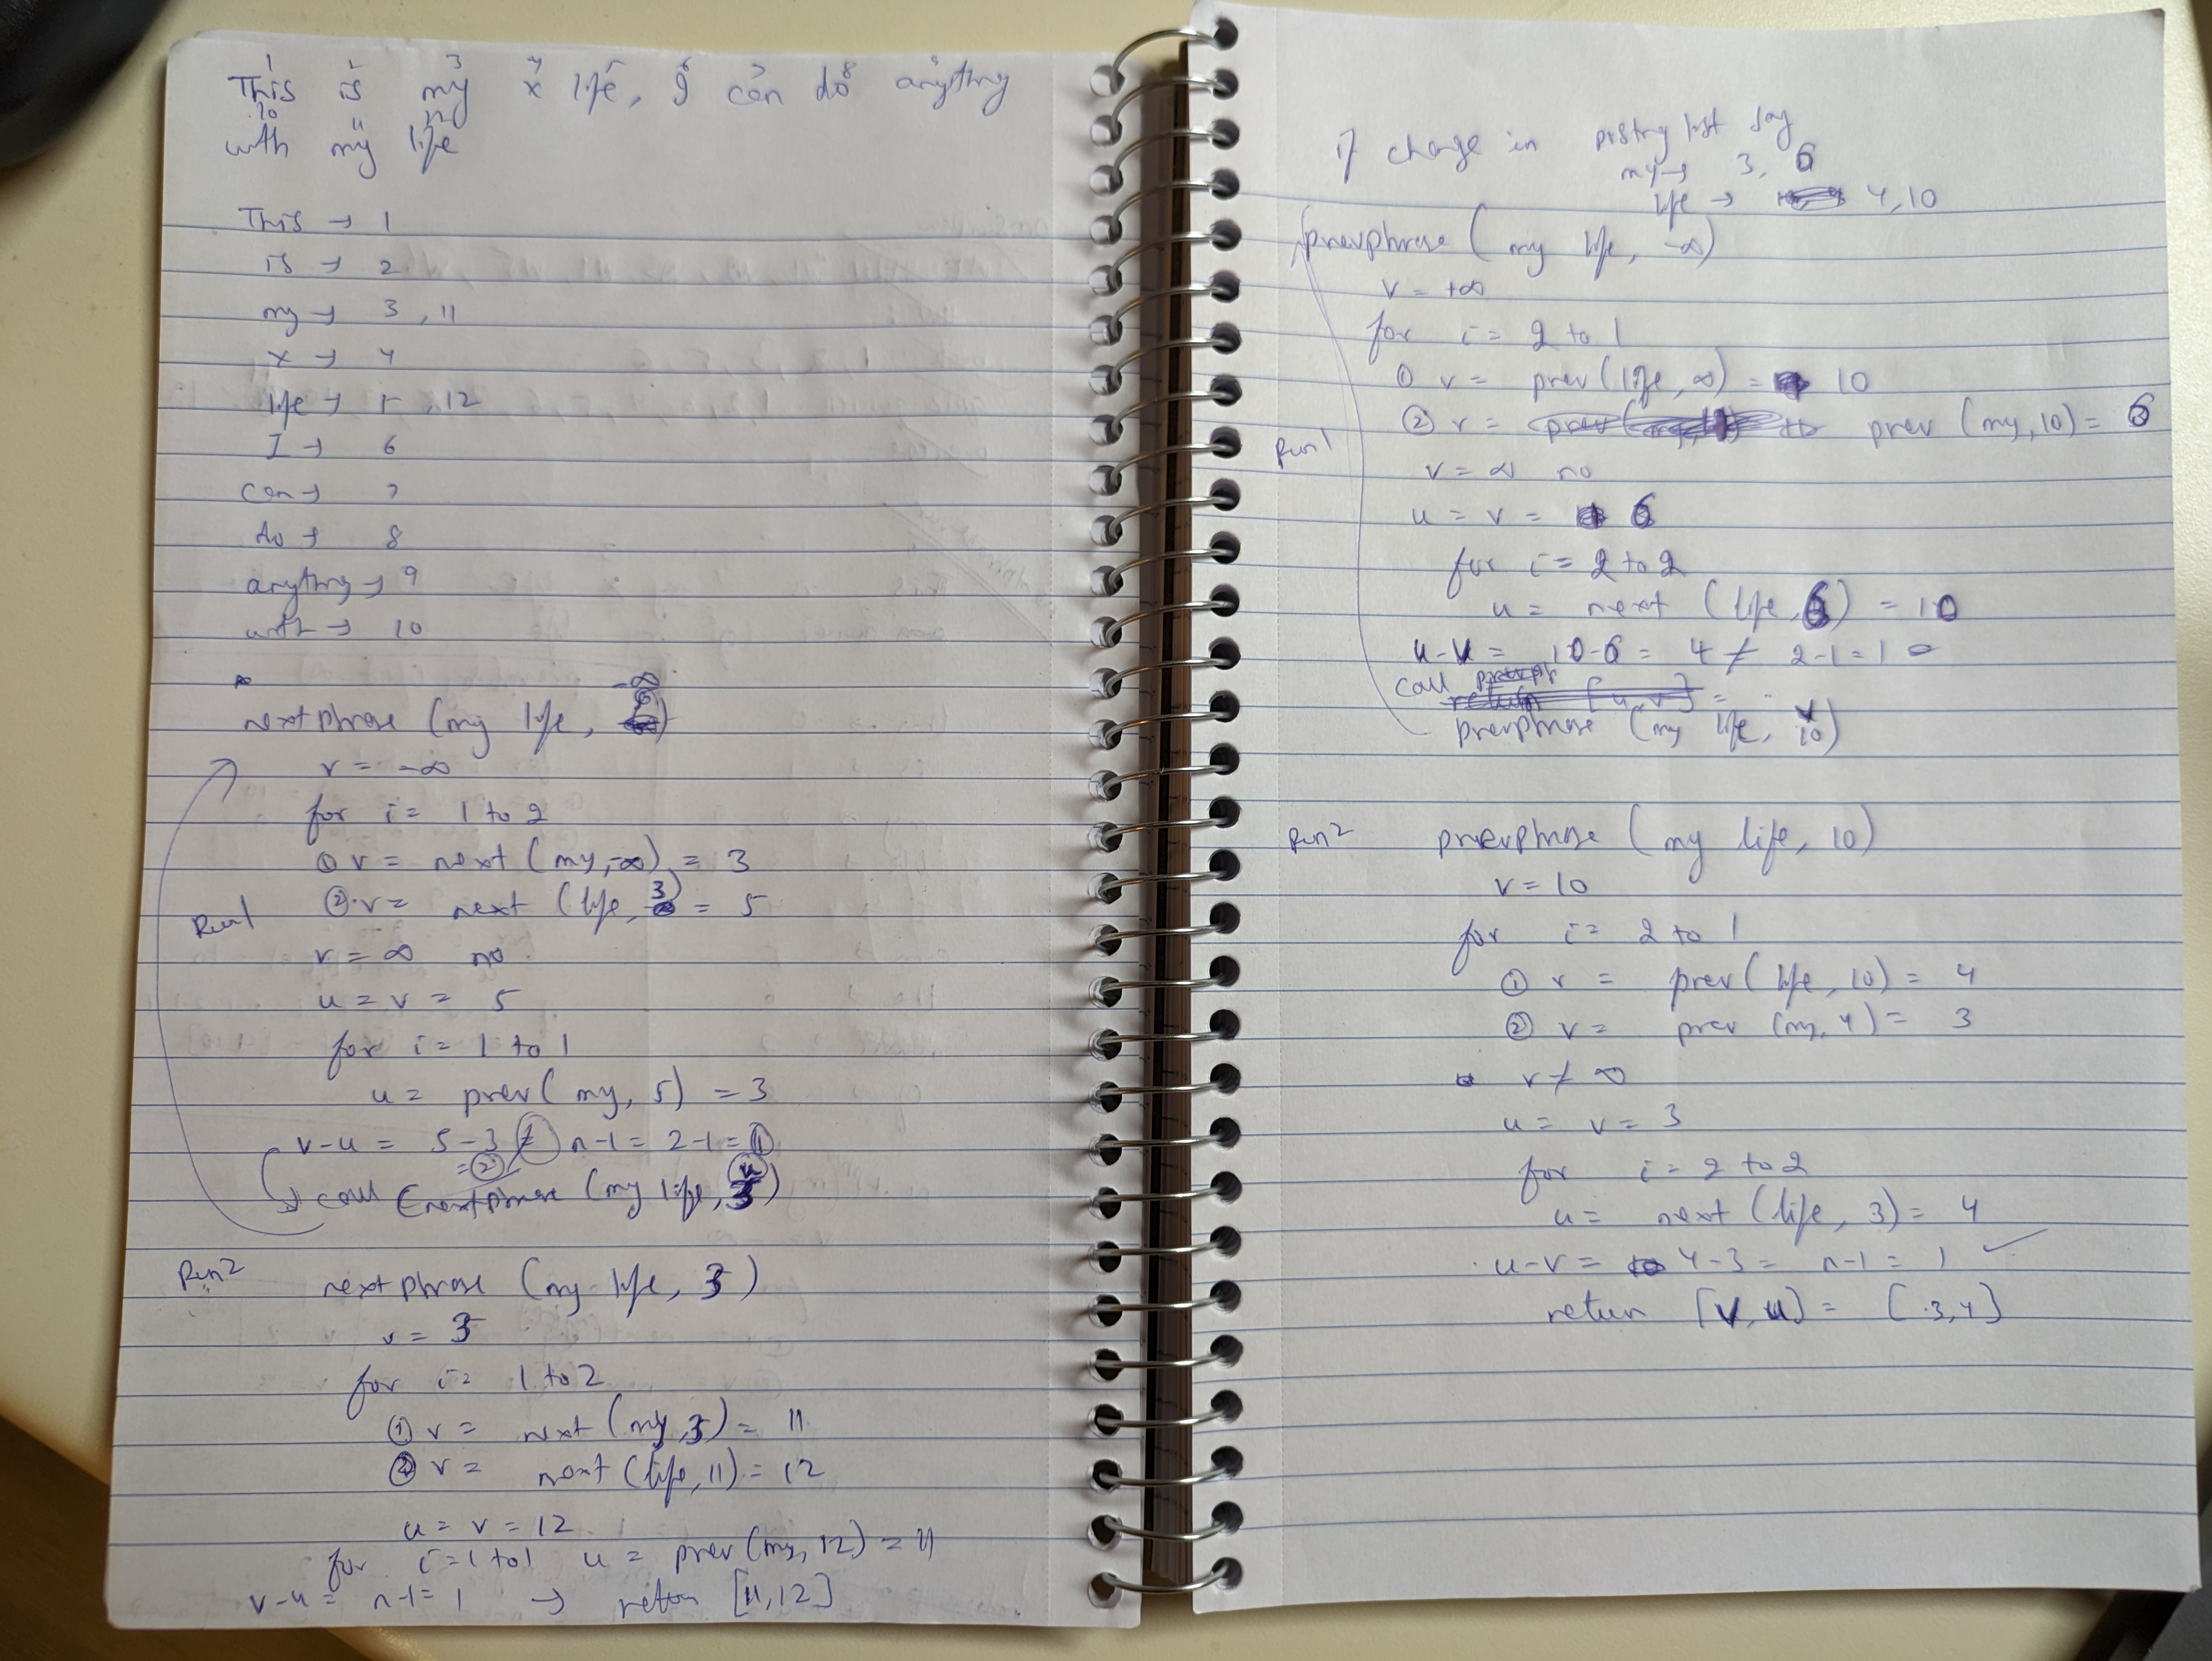 1 2 3 4 5 6 7 8 9
This is my x life, I can do anything
10 11 12
with my life
This → 1
is → 2
my → 3, 11
x → 4
life → 5, 12
I → 6
can → 7
do → 8
anything → 9
with → 10
-∞
nextphrase (my life, )
v = -∞
for i = 1 to 2
① v = next (my, -∞) = 3
Run1 ② v = next (life, 3) = 5
v = ∞ no
u = v = 5
for i = 1 to 1
u = prev (my, 5) = 3
v-u = 5-3 ≠ n-1 = 2-1 = ①
= ②
u
call (nextphrase (my life, 3)
Run2 nextphrase (my life, 3)
v = 3
for i = 1 to 2
① v = next (my, 3) = 11
② v = next (life, 11) = 12
u = v = 12
for i = 1 to 1 u = prev (my, 12) = 11
v-u = n-1 = 1 → return [11, 12]
if change in posting list say
my → 3, 6
life → 4, 10
prevphrase (my life, -∞)
v = +∞
for i = 2 to 1
① v = prev (life, ∞) = 10
Run1 ② v = prev (my, 10) = 6
v = ∞ no
u = v = 6
for i = 2 to 2
u = next (life, 6) = 10
u-v = 10-6 = 4 ≠ 2-1 = 1
call
v
prevphrase (my life, 10)
Run2 prevphrase (my life, 10)
v = 10
for i = 2 to 1
① v = prev (life, 10) = 4
② v = prev (my, 4) = 3
v ≠ ∞
u = v = 3
for i = 2 to 2
u = next (life, 3) = 4
u-v = 4-3 = n-1 = 1 ✓
return [v, u] = [3, 4]